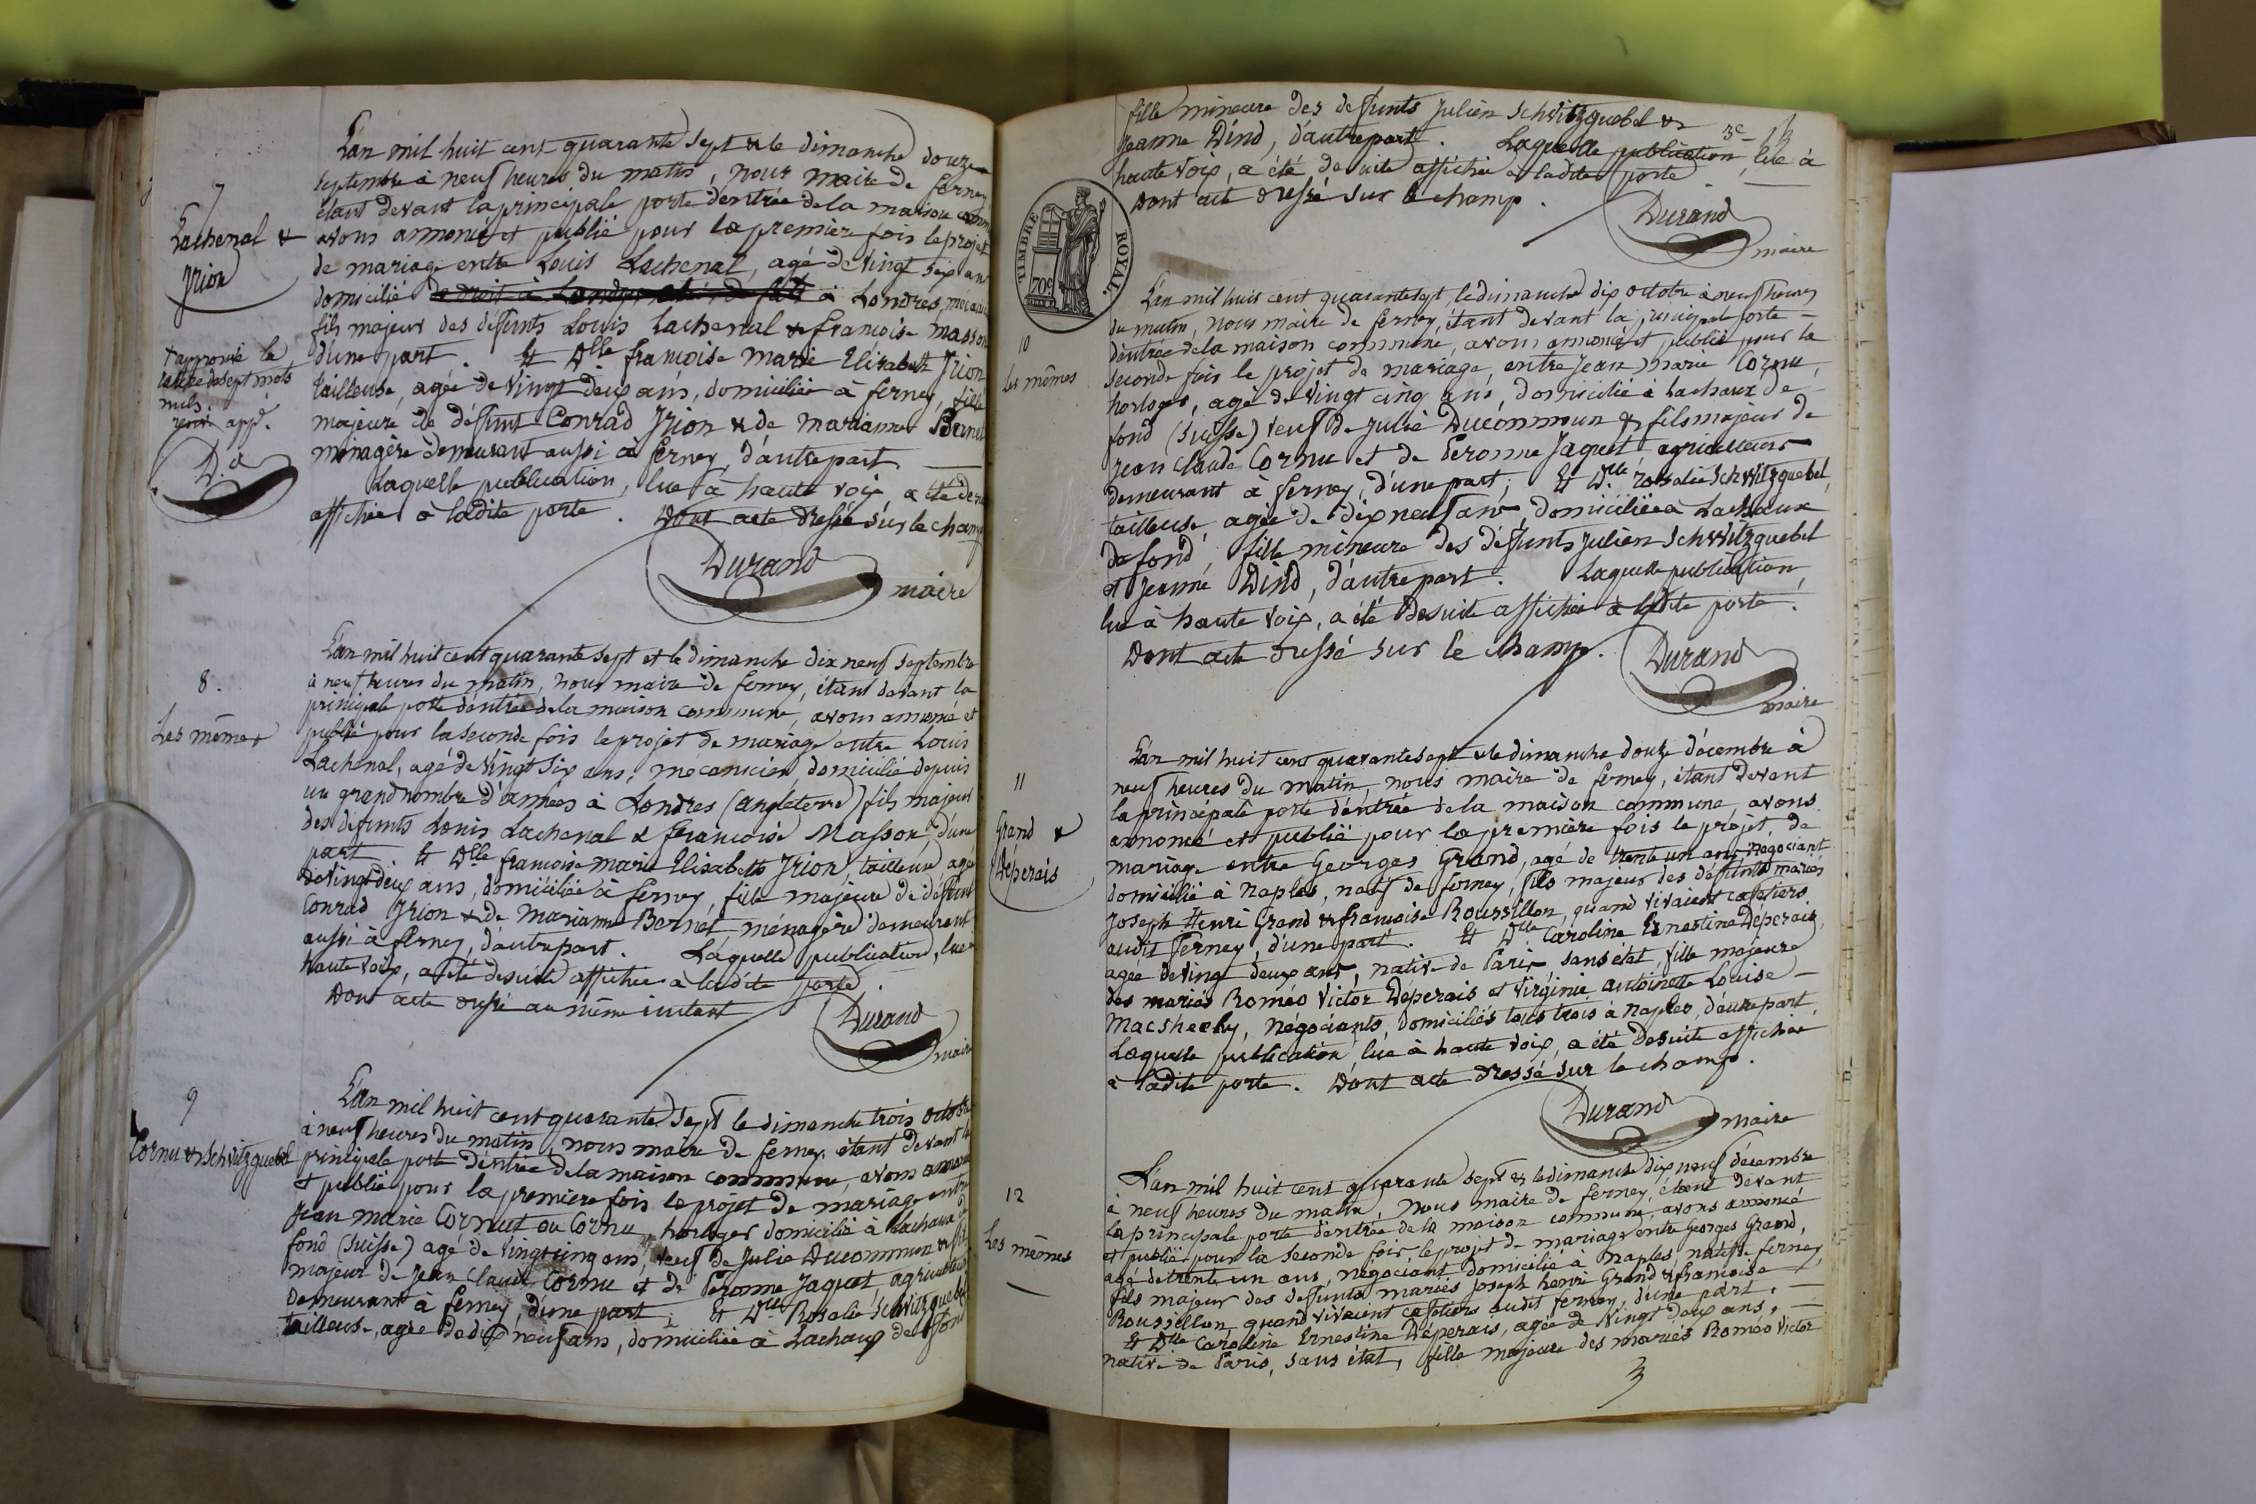 7
Lachenal &
Irion
L'an mil huit cent quarante sept & le dimanche douze
septembre à neuf heures du matin, nous maire de ferney
étant devant la principale porte d'entrée de la maison comm
avons annoncé et publié pour la première fois le projet
de mariage entre Louis Lachenal, agé de vingt six ans
domicilié de droit à Londres à Londres, mécani
fils majeur des défunts Louis Lachenal & françoise Masson
d'une part. Et Dlle françoise Marie Elisabeth Irion
tailleuse, agée de vingt deux ans, domiciliée à ferney, fille
majeure de défunt Conrad Irion & de Marianne Bernet
ménagère demeurant aussi à ferney, d'autre part.
Laquelle publication, lue à haute voix, a été de su
affichée à ladite porte. Dont acte dressé sur le champ
+ approuvé la
rature de sept mots
nuls
app.
D.d
Durand
maire
8.
Les mêmes
L'an mil huit cent quarante sept et le dimanche dix neuf septembre
à neuf heures du matin, nous maire de ferney, étant devant la
principale porte d'entrée de la maison commune, avons annoncé et
publié pour la seconde fois le projet de mariage entre Louis
Lachenal, agé de vingt six ans, mécanicien, domicilié depuis
un grand nombre d'années à Londres (angleterre) fils majeur
des défunts Louis Lachenal & françoise Masson, d'une
part Et Dlle françoise marie Elisabeth Irion, tailleuse, agée
de vingt deux ans, domiciliée à ferney, fille majeure de défunt
Conrad Irion & de Marianne Bernet ménagère demeurant
aussi à ferney, d'autre part. Laquelle publication, lue à
haute voix, a été de suite affichée à ladite porte.
Dont acte dressé au même instant
Durand
maire
9
Cornu & Schvitzguebel
L'an mil huit cent quarante sept le dimanche trois octobre
à neuf heures du matin, nous maire de ferney étant devant la
principale porte d'entrée de la maison commune, avons annoncé
et publié pour la première fois le projet de mariage entre
Jean marie Cornut ou Cornu, horloger domicilié à Lachaux de
fond (Suisse) agé de vingt cinq ans, veuf de Julie Ducommun & fils
majeur de Jean Claude Cornu et de Peronne Jaquet, agriculteurs
demeurant à ferney, d'une part; Et Dlle Rosalie Schvitzguebel
tailleuse, agée de dix neuf ans, domiciliée à Lachaux de fond
3e 13
fille mineure des défunts Julien Schvitzguebel &
Jeanne Dind, d'autre part. Laquelle publication, lue à
haute voix, a été de suite affichée à ladite porte.
Dont acte dressé sur le champ.
Durand
maire
TIMBRE ROYAL.
70c
10
Les mêmes
L'an mil huit cent quarante sept, le dimanche dix octobre à neuf heures
du matin, nous maire de ferney, étant devant la principale porte
d'entrée de la maison commune, avons annoncé et publié pour la
seconde fois le projet de mariage, entre Jean Marie Cornu,
horloger, agé de vingt cinq ans, domicilié à Lachaux de
fond (Suisse) veuf de Julie Ducommun & fils majeur de
Jean Claude Cornu et de Peronne Jaquet, agriculteurs
demeurant à ferney, d'une part; Et Dlle Rosalie Schvitzguebel,
tailleuse, agée de dix neuf ans, domiciliée à Lachaux
de fond, fille mineure des défunts Julien Schvitzguebel
et Jeanne Dind, d'autre part. Laquelle publication,
lue à haute voix, a été de suite affichée à ladite porte.
Dont acte dressé sur le champ.
Durand
maire
11
Grand &
Déperais
L'an mil huit cent quarante sept & le dimanche douze décembre à
neuf heures du matin, nous maire de ferney, étant devant
la principale porte d'entrée de la maison commune, avons
annoncé et publié pour la première fois le projet de
mariage entre Georges Grand, agé de trente un ans négociant
domicilié à Naples, natif de ferney, fils majeur des défunts mariés
Joseph Henri Grand & françoise Roussillon, quand vivaient cafetiers
audit Ferney, d'une part. Et Dlle Caroline Ernestine Déperais,
agée de vingt deux ans, native de Paris sans état, fille majeure
des mariés Roméo Victor Déperais et Virginie antoinette Louise
Macsheehy, négociants, domiciliés tous trois à Naples, d'autre part,
Laquelle publication, lue à haute voix, a été de suite affichée
à ladite porte. Dont acte dressé sur le champ.
Durand
maire
12
Les mêmes
L'an mil huit cent quarante sept & le dimanche dix neuf décembre
à neuf heures du matin, nous maire de ferney, étant devant
la principale porte d'entrée de la maison commune, avons annoncé
et publié pour la seconde fois, le projet de mariage entre Georges Grand,
agé de trente un ans, négociant domicilié à Naples, natif de ferney,
fils majeur des défunts mariés Joseph henri Grand & françoise
Roussillon quand vivaient cafetiers audit ferney, d'une part.
Et Dlle Caroline Ernestine Déperais, agée de Vingt deux ans,
native de Paris, sans état, fille majeure des mariés Roméo Victor
3